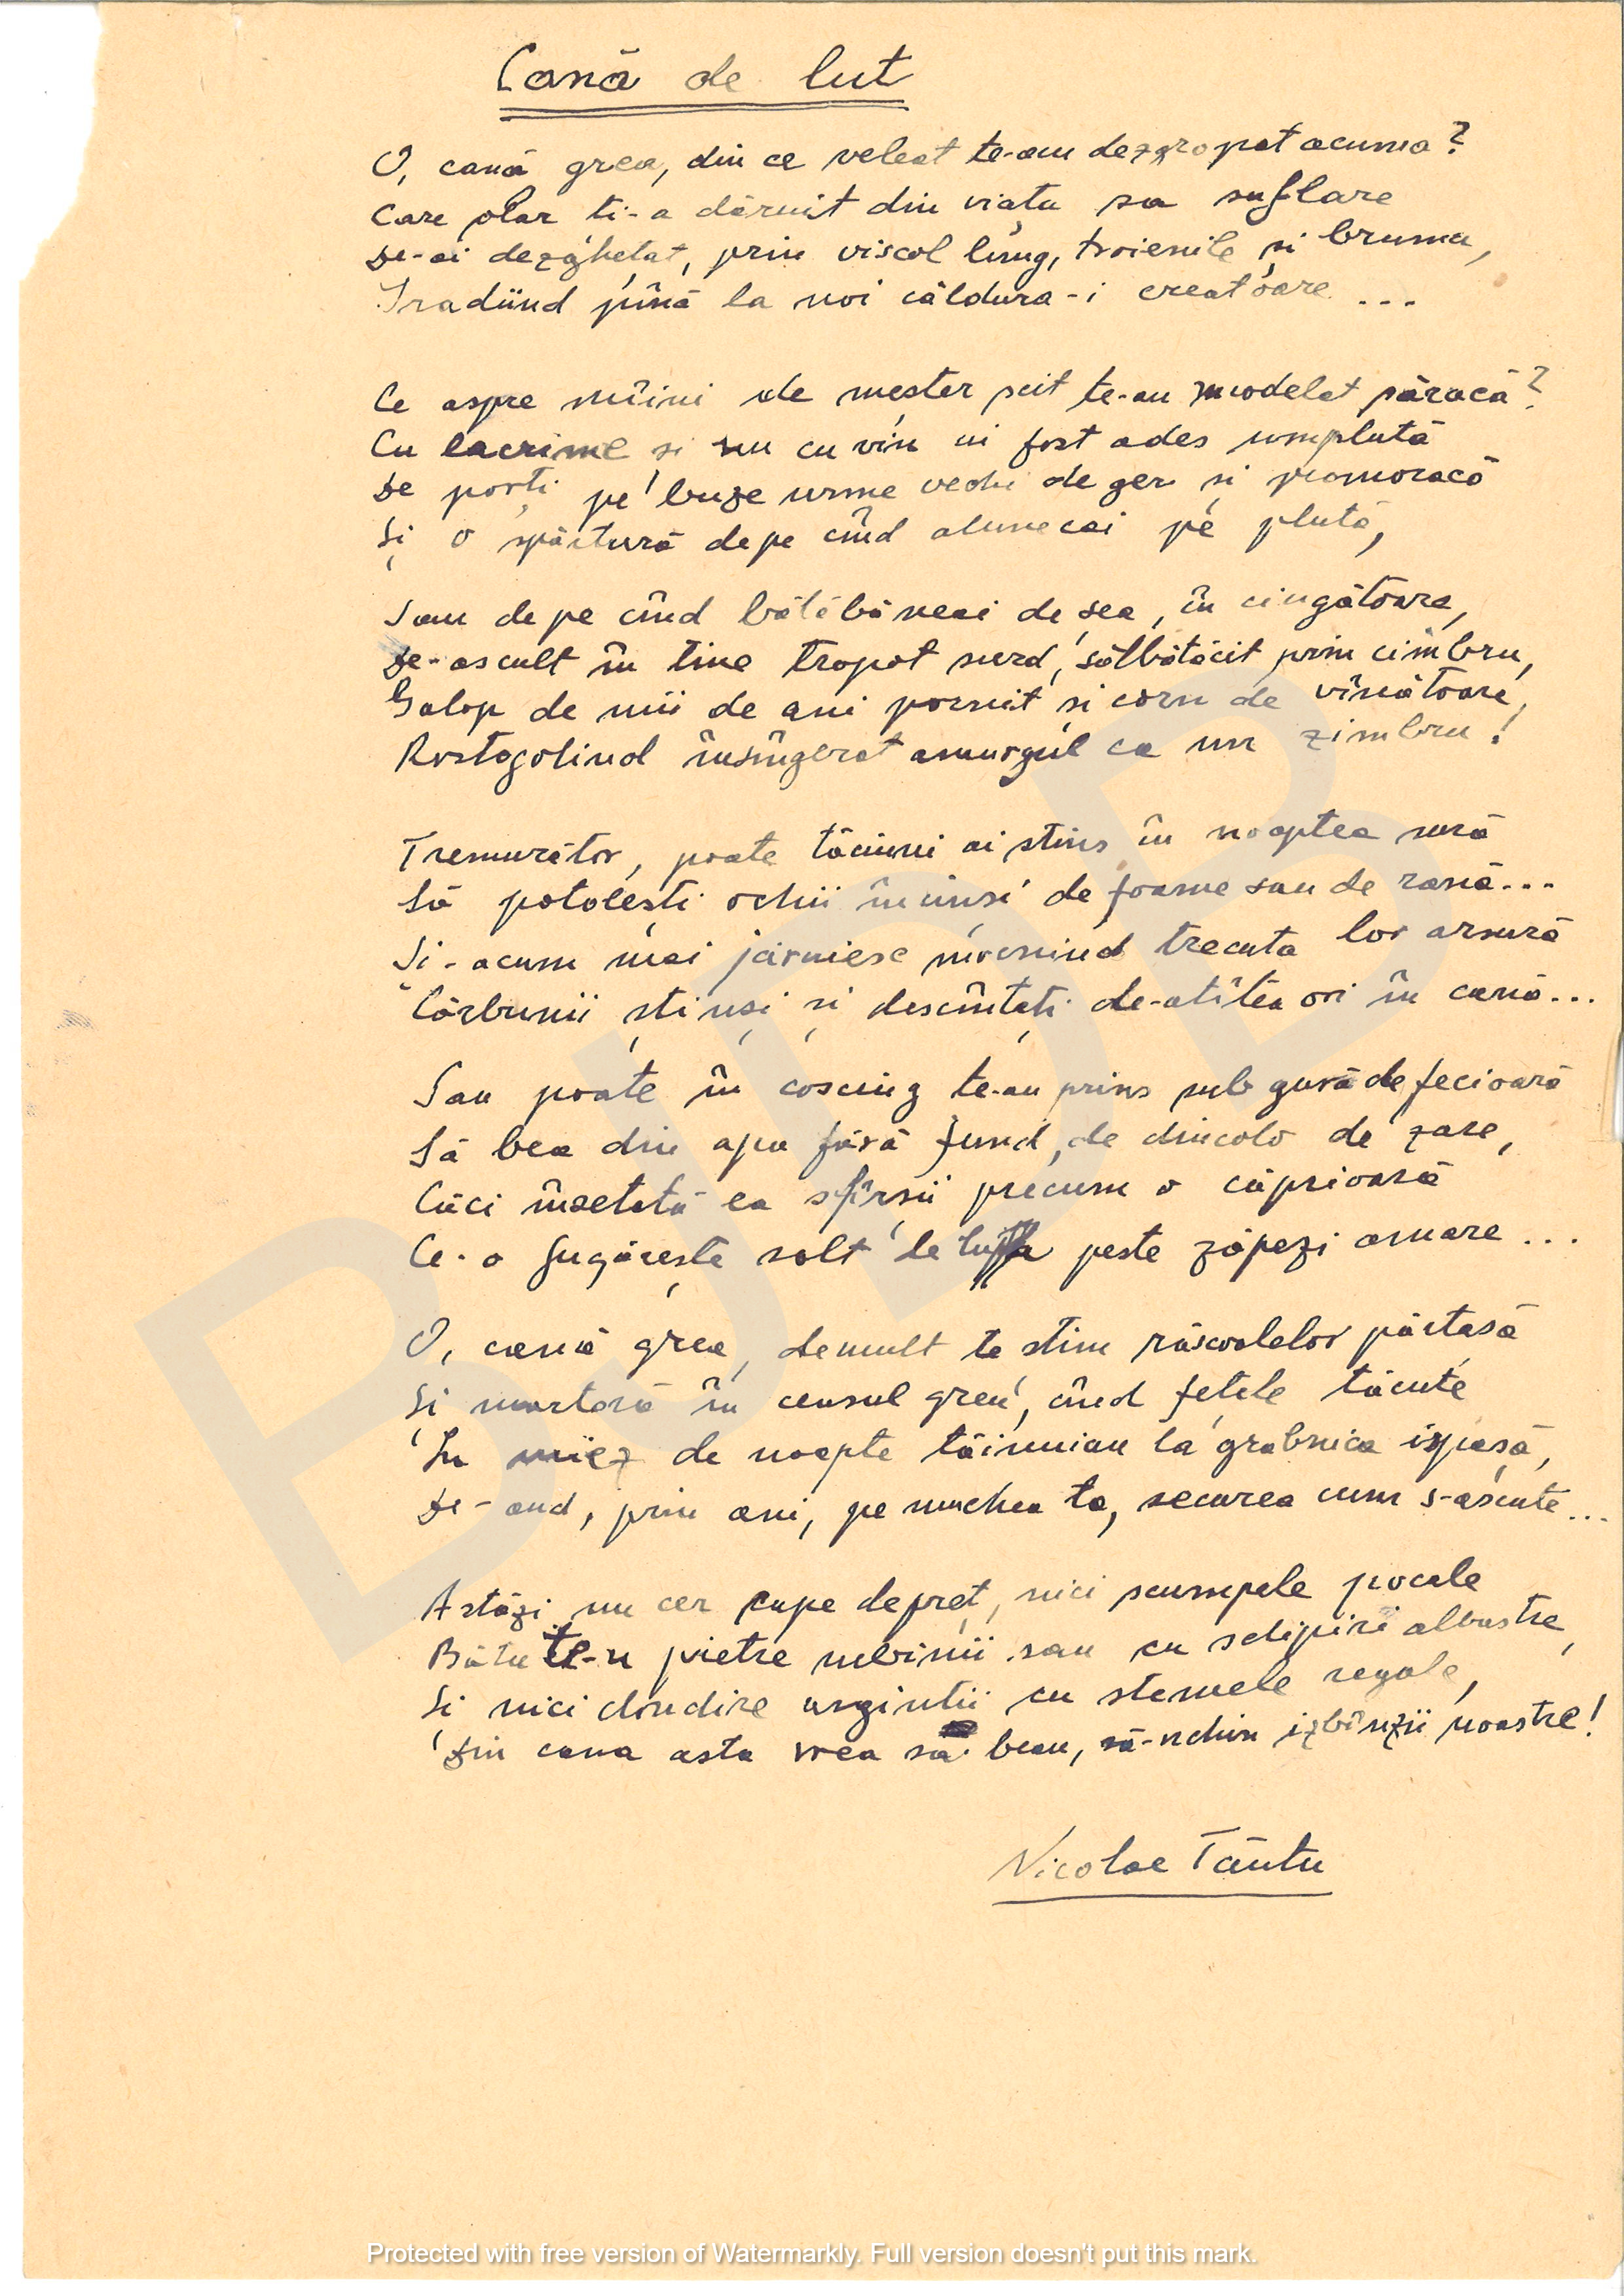 Cană de lut
O, cană grea, din ce veleat te-am dezgropat acuma?
Care olar ți-a dăruit din viața sa suflare
De-ai dezghețat, prin viscol lung, troienile și bruma,
Iradiind pînă la noi căldura-i creatoare ...
Ce aspre mîini de meșter scit te-au modelat săracă?
Cu lacrime și nu cu vin ai fost ades umplută
De porți pe buze urme vechi de ger și promoracă
Și o spărtură de pe cînd alunecai pe plută,
Sau de pe cînd bălăbăneai de șea, în cingătoare,
De-ascult în tine tropot surd, sălbătăcit prin cimbru,
Galop de mii de ani pornit și corn de vînătoare,
Rostogolind însîngerat amurgul ca un zimbru!
Tremurător, poate tăciuni ai stins în noaptea sură
Să potolești ochii încinși de foame sau de rană...
Și-acum mai jăruiesc mocnind trecuta lor arsură
Cărbunii stinși și descîntați de-atîtea ori în cană...
Sau poate în coșciug te-au prins sub gură de fecioară
Să bea din apa fără fund, de dincolo de zare,
Căci însetată ea sfîrșii precum o căprioară
Ce-o fugărește salt de peste zăpezi amare ...
O, cană grea, demult te știm răscoalelor părtașă
Și martoră în ceasul greu, cînd fețele tăcute
În miez de noapte tăinuiau la grabnica ispașă,
De-aud, prin ani, pe muchea ta, securea cum s-ascute...
Astăzi nu cer cupe de preț, nici scumpele pocale
Bătute-n pietre rubinii sau cu sclipiri albastre,
Și nici clondire argintii cu stemele regale,
Din cana asta vrea să beau, să-nchin izbînzii noastre!
Nicolae Tăutu
BJDB
Protected with free version of Watermarkly. Full version doesn't put this mark.